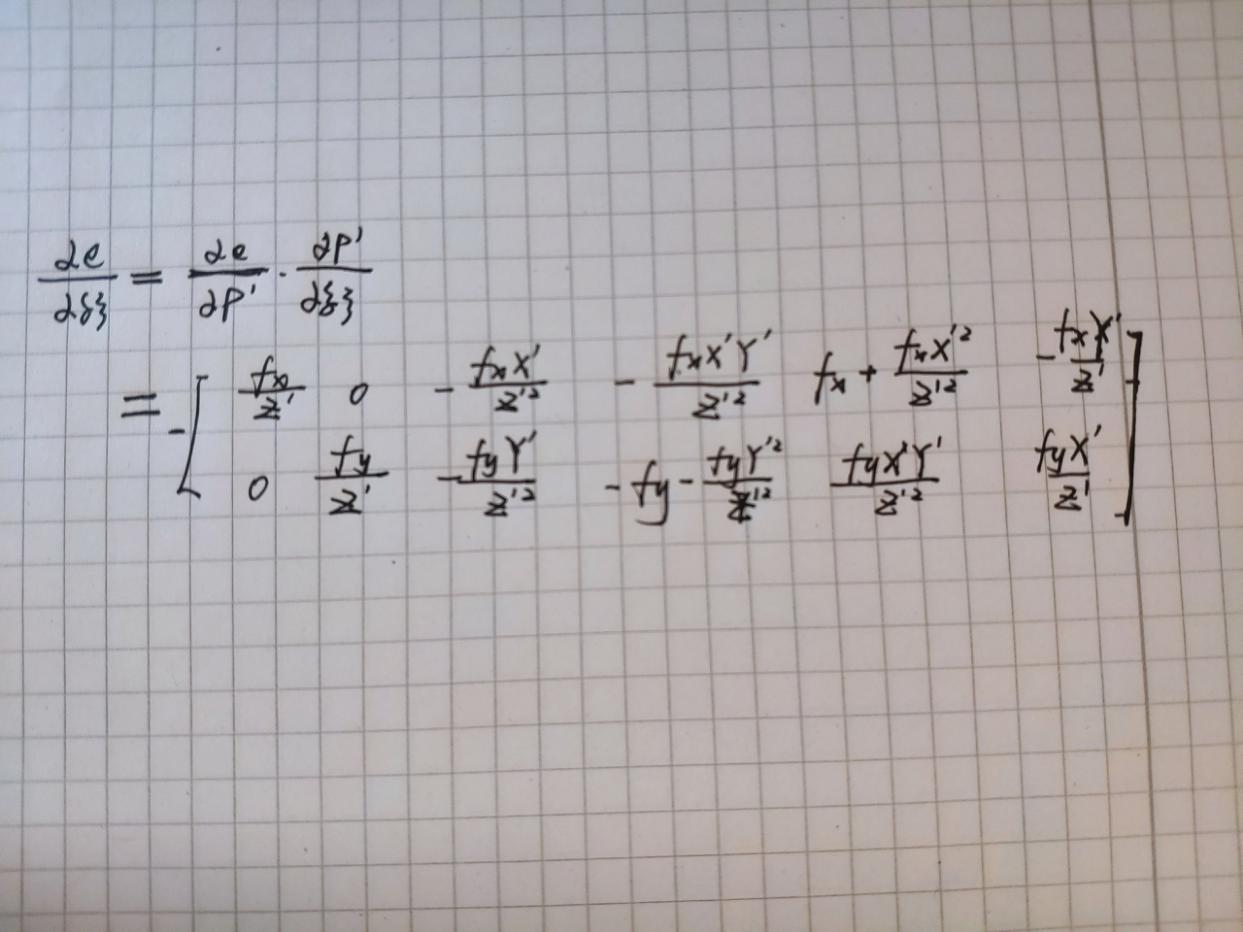 \frac{\partial e}{\partial \delta \xi} = \frac{\partial e}{\partial P'} \cdot \frac{\partial P'}{\partial \delta \xi}
= - \begin{bmatrix} \frac{f_x}{Z'} & 0 & -\frac{f_x X'}{Z'^2} & -\frac{f_x X' Y'}{Z'^2} & f_x + \frac{f_x X'^2}{Z'^2} & -\frac{f_x Y'}{Z'} \\ 0 & \frac{f_y}{Z'} & -\frac{f_y Y'}{Z'^2} & -f_y - \frac{f_y Y'^2}{Z'^2} & \frac{f_y X' Y'}{Z'^2} & \frac{f_y X'}{Z'} \end{bmatrix}